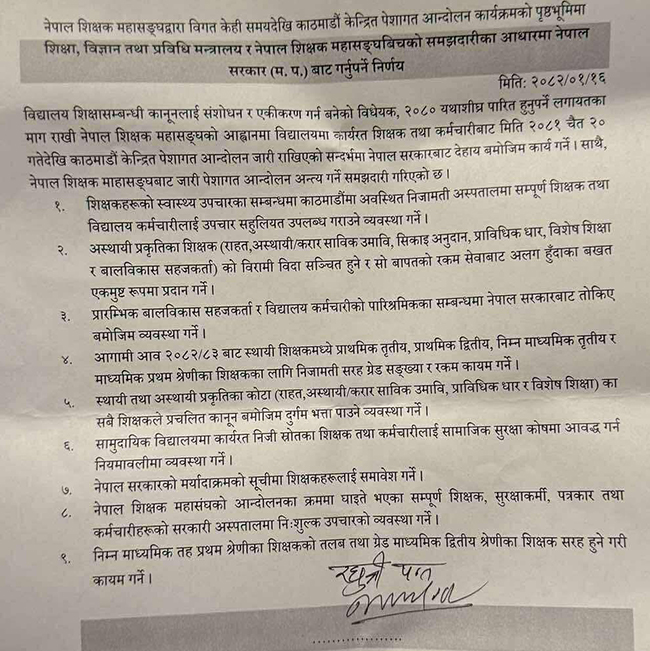 नेपाल शिक्षक महासङ्घद्वारा विगत केही समयदेखि काठमाडौं केन्द्रित पेशागत आन्दोलन कार्यक्रमको पृष्ठभूमिमा
शिक्षा, विज्ञान तथा प्रविधि मन्त्रालय र नेपाल शिक्षक महासङ्घबिचको समझदारीका आधारमा नेपाल
सरकार (म. प.) बाट गर्नुपर्ने निर्णय
मिति: २०८२/०१/१६
विद्यालय शिक्षासम्बन्धी कानूनलाई संशोधन र एकीकरण गर्न बनेको विधेयक, २०८० यथाशीघ्र पारित हुनुपर्ने लगायतका
माग राखी नेपाल शिक्षक महासङ्घको आह्वानमा विद्यालयमा कार्यरत शिक्षक तथा कर्मचारीबाट मिति २०८१ चैत २०
गतेदेखि काठमाडौं केन्द्रित पेशागत आन्दोलन जारी राखिएको सन्दर्भमा नेपाल सरकारबाट देहाय बमोजिम कार्य गर्ने। साथै,
नेपाल शिक्षक माहासङ्घबाट जारी पेशागत आन्दोलन अन्त्य गर्ने समझदारी गरिएको छ।
१. शिक्षकहरूको स्वास्थ्य उपचारका सम्बन्धमा काठमाडौंमा अवस्थित निजामती अस्पतालमा सम्पूर्ण शिक्षक तथा
विद्यालय कर्मचारीलाई उपचार सहुलियत उपलब्ध गराउने व्यवस्था गर्ने।
२. अस्थायी प्रकृतिका शिक्षक (राहत,अस्थायी/करार साविक उमावि, सिकाइ अनुदान, प्राविधिक धार, विशेष शिक्षा
र बालविकास सहजकर्ता) को विरामी विदा सञ्चित हुने र सो बापतको रकम सेवाबाट अलग हुँदाका बखत
एकमुष्ट रूपमा प्रदान गर्ने।
३. प्रारम्भिक बालविकास सहजकर्ता र विद्यालय कर्मचारीको पारिश्रमिकका सम्बन्धमा नेपाल सरकारबाट तोकिए
बमोजिम व्यवस्था गर्ने।
४. आगामी आव २०८२/८३ बाट स्थायी शिक्षकमध्ये प्राथमिक तृतीय, प्राथमिक द्वितीय, निम्न माध्यमिक तृतीय र
माध्यमिक प्रथम श्रेणीका शिक्षकका लागि निजामती सरह ग्रेड सङ्ख्या र रकम कायम गर्ने।
५. स्थायी तथा अस्थायी प्रकृतिका कोटा (राहत,अस्थायी/करार साविक उमावि, प्राविधिक धार र विशेष शिक्षा) का
सबै शिक्षकले प्रचलित कानून बमोजिम दुर्गम भत्ता पाउने व्यवस्था गर्ने।
६. सामुदायिक विद्यालयमा कार्यरत निजी स्रोतका शिक्षक तथा कर्मचारीलाई सामाजिक सुरक्षा कोषमा आवद्ध गर्न
नियमावलीमा व्यवस्था गर्ने।
७. नेपाल सरकारको मर्यादाक्रमको सूचीमा शिक्षकहरूलाई समावेश गर्ने।
८. नेपाल शिक्षक महासंघको आन्दोलनका क्रममा घाइते भएका सम्पूर्ण शिक्षक, सुरक्षाकर्मी, पत्रकार तथा
कर्मचारीहरूको सरकारी अस्पतालमा निःशुल्क उपचारको व्यवस्था गर्ने।
९. निम्न माध्यमिक तह प्रथम श्रेणीका शिक्षकको तलब तथा ग्रेड माध्यमिक द्वितीय श्रेणीका शिक्षक सरह हुने गरी
कायम गर्ने।
रघुजी पन्त